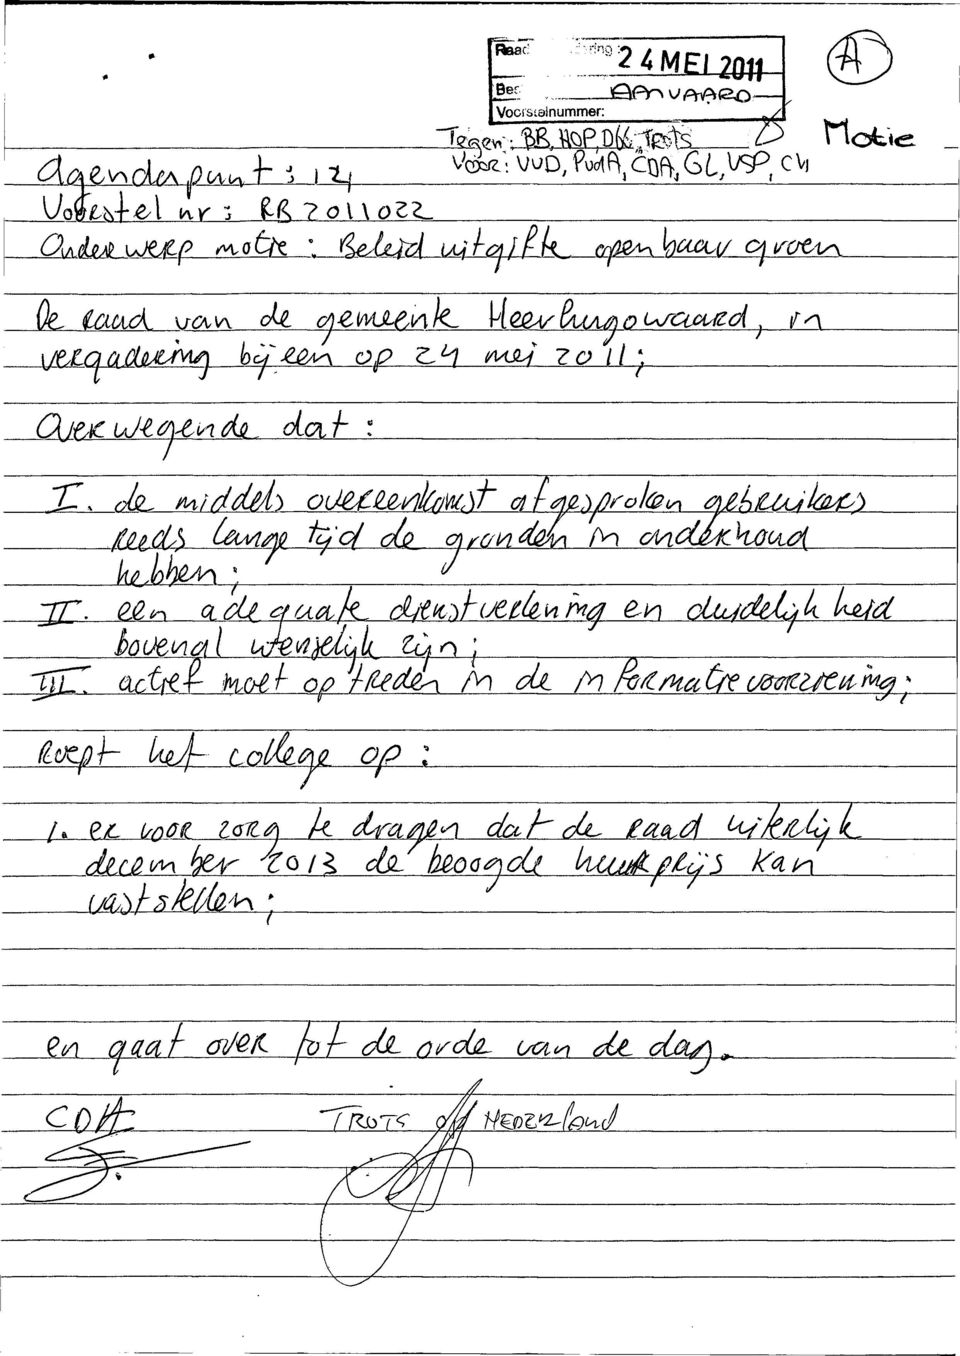 Raad
24 MEI 2011
Bes
AANVAARD
Voorstelnummer:
A
Motie
Tegen: BB, HOP, D66, TROTS
Voor: VVD, PvdA, CDA, GL, VSP, CU
Agendapunt: 12
Voorstel nr: RB2011022
Onderwerp motie: Beleid uitgifte openbaar groen
De raad van de gemeente Heerhugowaard, in
vergadering bijeen op 24 mei 2011;
Overwegende dat:
I. de middels overeenkomst afgesproken gebruikers
reeds lange tijd de gronden in onderhoud
hebben;
II. een adequate dienstverlening en duidelijkheid
bovenal wenselijk zijn;
III. actief moet optreden in de informatievoorziening;
Roept het college op:
1. er voor zorg te dragen dat de raad uiterlijk
december 2013 de beoogde huurprijs kan
vaststellen;
en gaat over tot de orde van de dag.
CDA TROTS op NEDERland